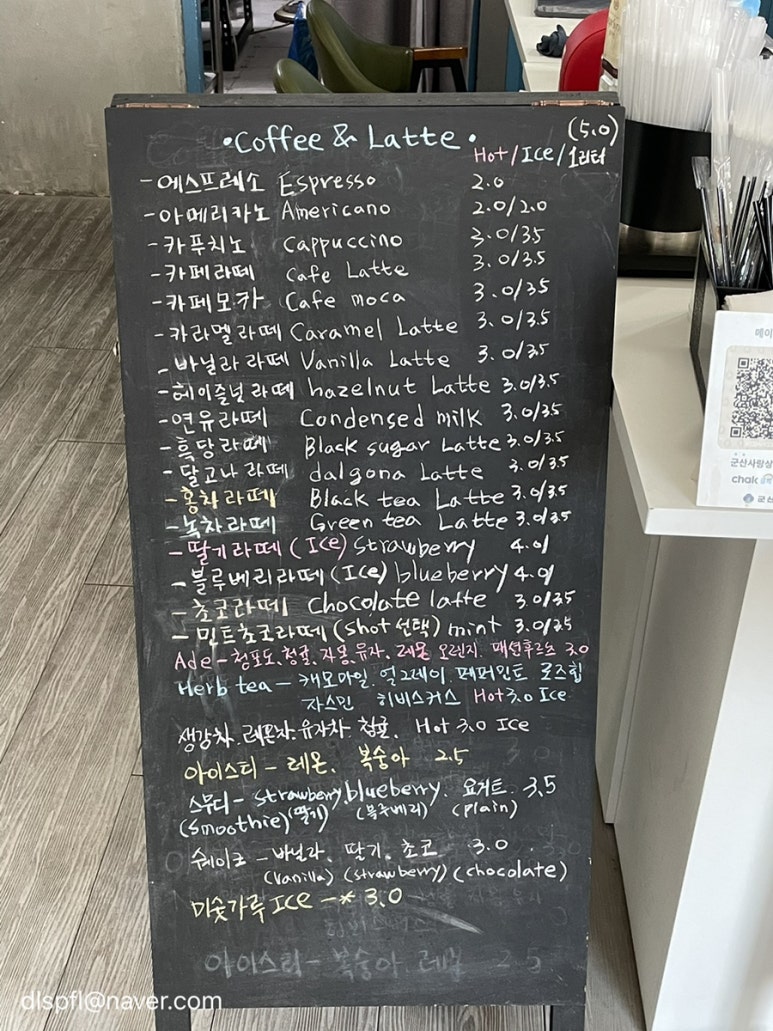 •Coffee & Latte• (5.0)
Hot/Ice/1리터
-에스프레소 Espresso 2.0
-아메리카노 Americano 2.0/2.0
-카푸치노 cappuccino 3.0/3.5
-카페라떼 cafe Latte 3.0/3.5
-카페모카 Cafe moca 3.0/3.5
-카라멜라떼 Caramel Latte 3.0/3.5
-바닐라라떼 Vanilla Latte 3.0/3.5
-헤이즐넛라떼 hazelnut Latte 3.0/3.5
-연유라떼 Condensed milk 3.0/3.5
-흑당라떼 Black sugar Latte 3.0/3.5
-달고나라떼 dalgona Latte 3.0/3.5
-홍차라떼 Black tea Latte 3.0/3.5
-녹차라떼 Green tea Latte 3.0/3.5
-딸기라떼 (Ice) strawberry 4.0/
-블루베리라떼 (Ice) blueberry 4.0/
-초코라떼 chocolate latte 3.0/3.5
-민트초코라떼 (shot선택) mint 3.0/3.5
Ade-청포도.청귤.자몽.유자.레몬 오렌지. 패션후르츠 3.0
Herb tea - 캐모마일.얼그레이.페퍼민트 로즈힙
자스민 히비스커스 Hot 3.0 Ice
생강차.레몬차.유자차 Hot 3.0 Ice
아이스티-레몬. 복숭아 2.5
스무디-strawberry.blueberry. 요거트. 3.5
(smoothie) (딸기) (블루베리) (plain)
쉐이크-바닐라. 딸기. 초코 3.0
(vanilla) (strawberry) (chocolate)
미숫가루 Ice -* 3.0
아이스티-복숭아 레몬 2.5
군산사랑상
chak
군산
메이
dlspfl@naver.com